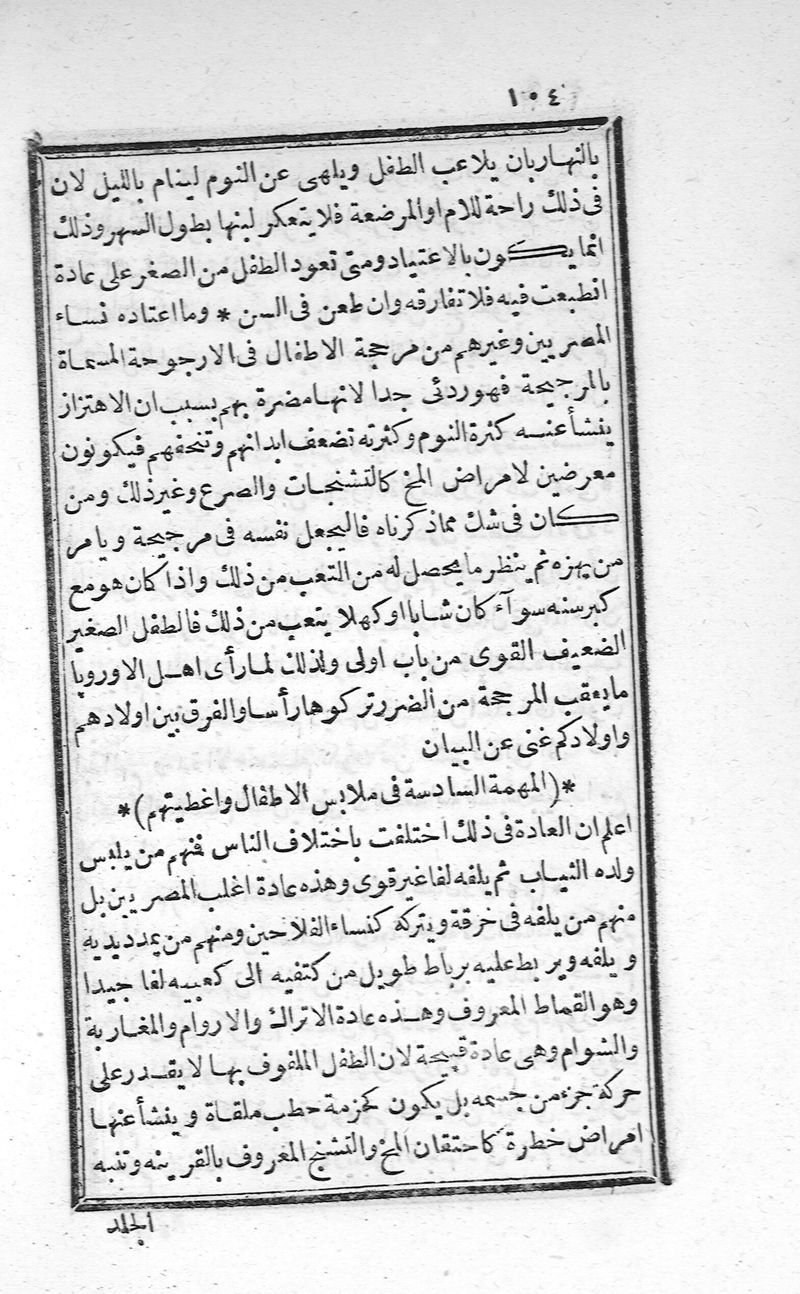 ١٠٤
بالنهار بان يلاعب الطفل ويلهى عن النوم لينام بالليل لان
فى ذلك راحة للام او المرضعة فلا يتعكر لبنها بطول السهر وذلك
انما يكون بالاعتياد ومتى تعود الطفل من الصغر على عادة
انطبعت فيه فلا تفارقه وان طعن فى السن * وما اعتاده نساء
المصريين وغيرهم من مرجحة الاطفال فى الارجوحة المسماة
بالمرجيحة فهو ردئى جدا لانها مضرة بهم بسبب ان الاهتزاز
ينشأ عنه كثرة النوم وكثرته تضعف ابدانهم وتنحفهم فيكونون
معرضين لامراض المخ كالتشنجات والصرع وغير ذلك ومن
كان فى شك مما ذكرناه فاليجعل نفسه فى مرجيحة ويامر
من يهزه ثم ينظر ما يحصل له من التعب من ذلك واذا كان هو مع
كبر سنه سوآء كان شابا او كهلا يتعب من ذلك فالطفل الصغير
الضعيف القوى من باب اولى ولذلك لما رأى اهل الاوروپا
ما يعقب المرجحة من الضرر تركوها رأسا والفرق بين اولادهم
واولادكم غنى عن البيان
*(المهمة السادسة فى ملابس الاطفال واغطيتهم)*
اعلم ان العادة فى ذلك اختلفت باختلاف الناس فمنهم من يلبس
ولده الثياب ثم يلفه لفا غير قوى وهذه عادة اغلب المصريين بل
منهم من يلفه فى خرقة ويتركه كنساء الفلاحين ومنهم من يمدد يديه
ويلفه ويربط عليه برباط طويل من كتفيه الى كعبيه لفا جيدا
وهو القماط المعروف وهذه عادة الاتراك والاروام والمغاربة
والشوام وهى عادة قبيحة لان الطفل الملفوف بها لا يقدر على
حركة جزء من جسمه بل يكون كحزمة حطب ملقاة وينشأ عنها
امراض خطرة كاحتقان المخ والتشنج المعروف بالقرينه وتنبه
الجلد